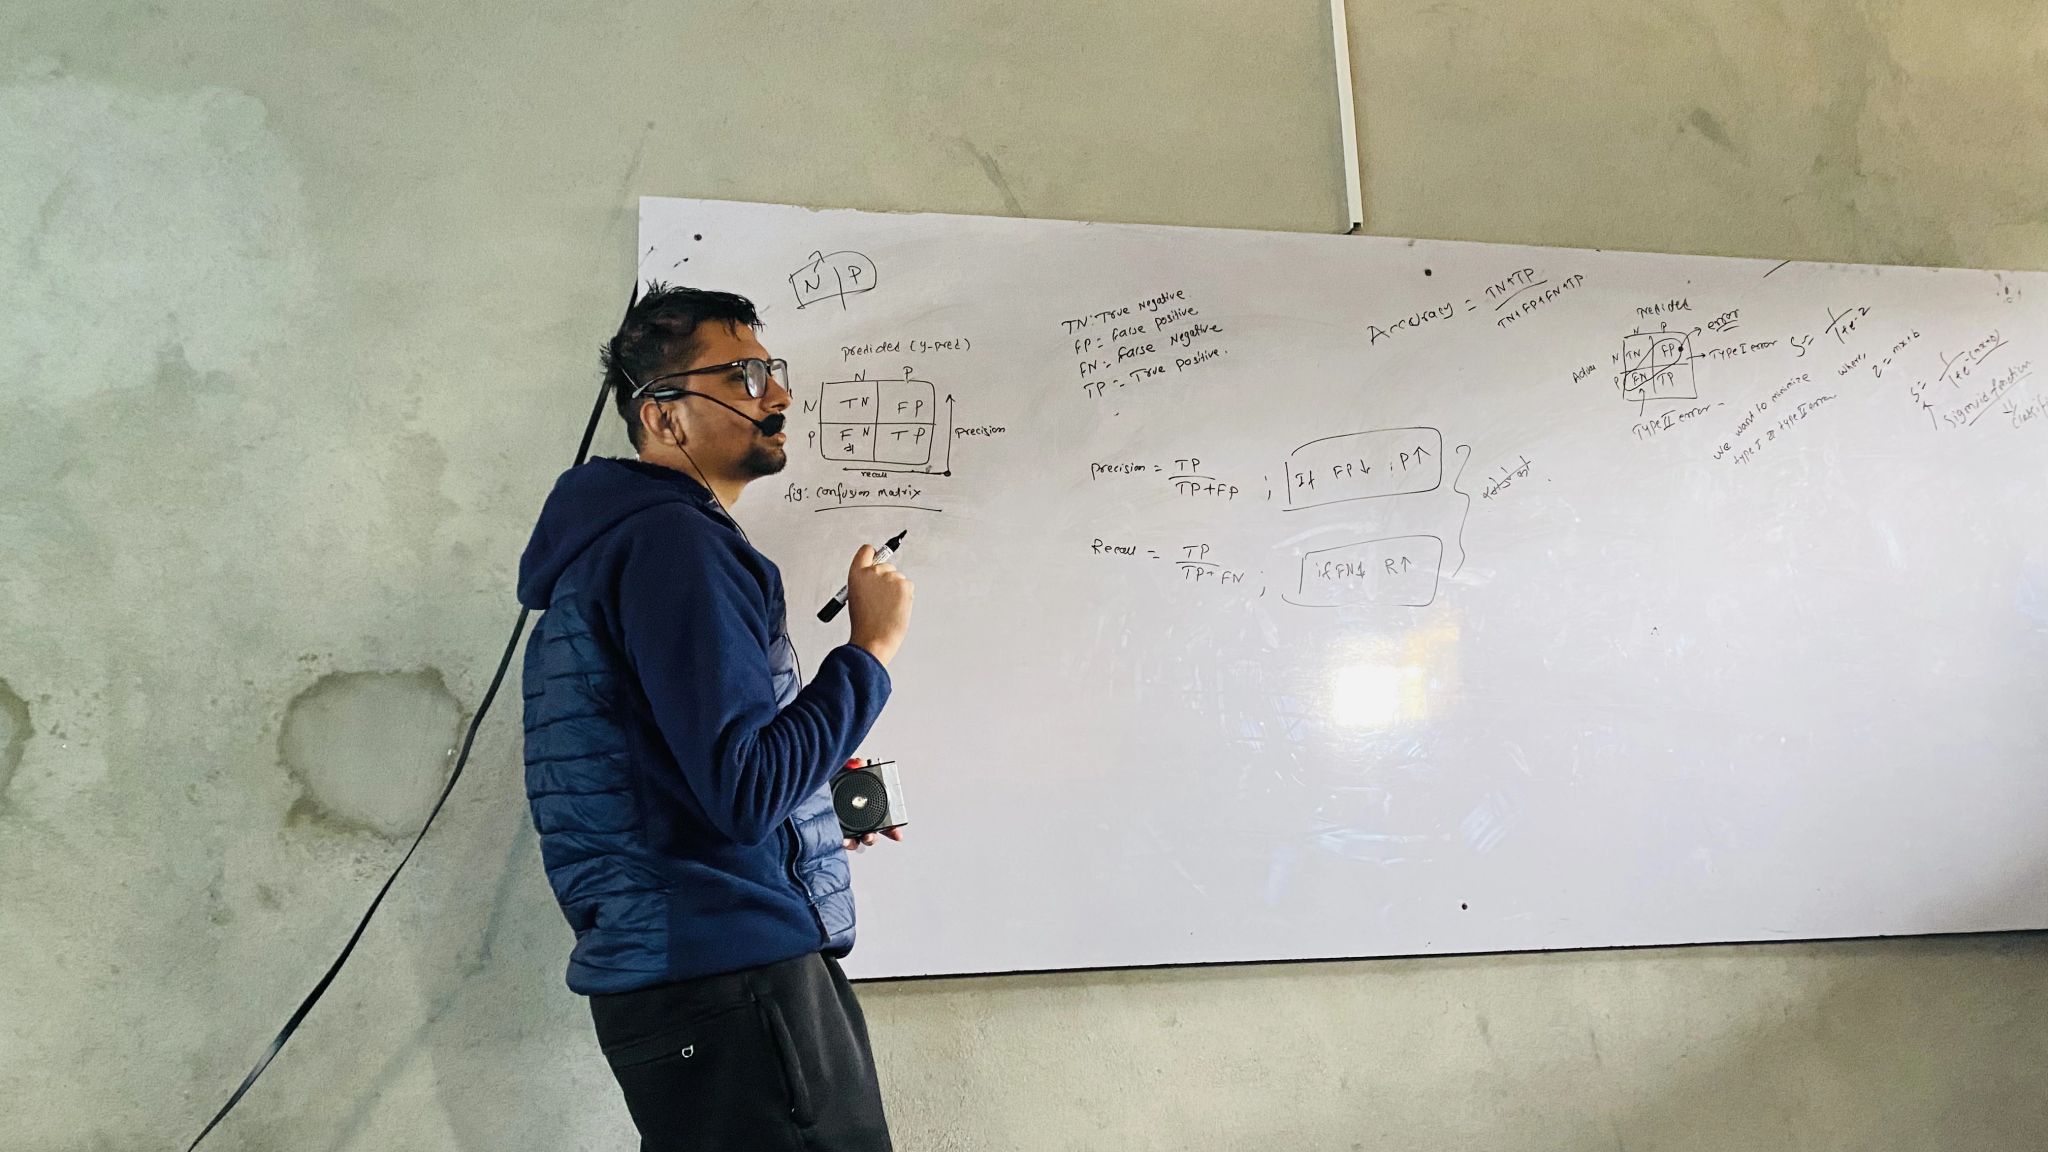 N | P
Predicted (y-pred)
N P
N TN FP
P FN TP
Precision
recall
fig: confusion matrix
TN: True Negative
FP = False positive
FN = False Negative
TP = True positive.
Accuracy = TN+TP
TN+FP+FN+TP
Precision = TP
TP+FP
; If FP↓ ; P↑
Recall = TP
TP+FN
; if FN↓ R↑
Predicted
N P
N TN FP
P FN TP
Actual
error
Type I error
Type II error
We want to minimize
type I & type II error
S = 1
1+e-z
where,
z = mx+b
S = 1
1+e-(mx+b)
Sigmoid function